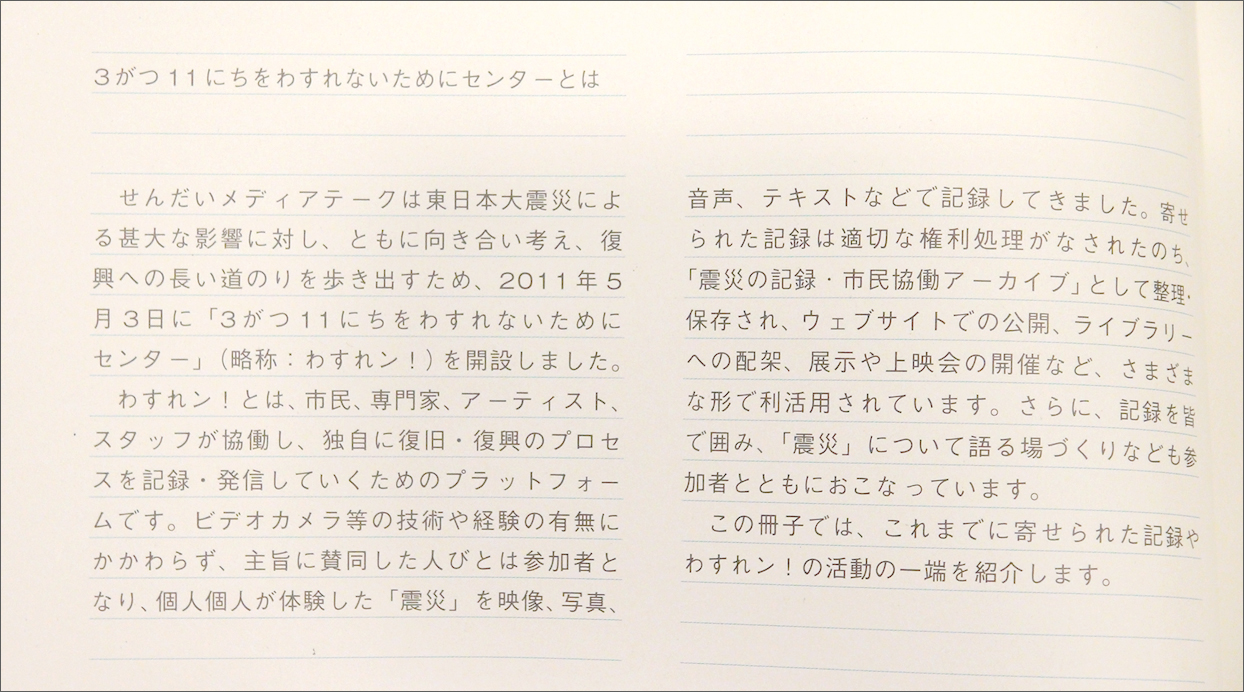 3がつ11にちをわすれないためにセンターとは
せんだいメディアテークは東日本大震災によ
る甚大な影響に対し、ともに向き合い考え、復
興への長い道のりを歩き出すため、2011年5
月3日に「3がつ11にちをわすれないために
センター」（略称：わすれン！）を開設しました。
わすれン！とは、市民、専門家、アーティスト、
スタッフが協働し、独自に復旧・復興のプロセ
スを記録・発信していくためのプラットフォー
ムです。ビデオカメラ等の技術や経験の有無に
かかわらず、主旨に賛同した人びとは参加者と
なり、個人個人が体験した「震災」を映像、写真、
音声、テキストなどで記録してきました。寄せ
られた記録は適切な権利処理がなされたのち、
「震災の記録・市民協働アーカイブ」として整理・
保存され、ウェブサイトでの公開、ライブラリー
への配架、展示や上映会の開催など、さまざま
な形で利活用されています。さらに、記録を皆
で囲み、「震災」について語る場づくりなども参
加者とともにおこなっています。
この冊子では、これまでに寄せられた記録や
わすれン！の活動の一端を紹介します。